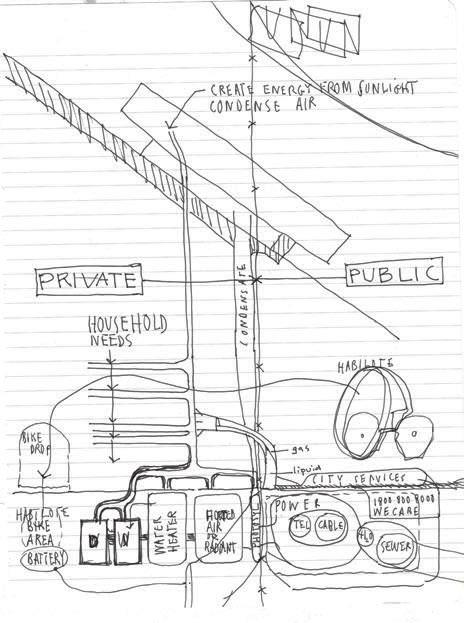 CREATE ENERGY FROM SUNLIGHT
CONDENSE AIR
PRIVATE
PUBLIC
CONDENSATE
HOUSEHOLD
NEEDS
HABILOTE
BIKE
DROP
gas
liquid
CITY SERVICES
HABILOTE
BIKE
AREA
BATTERY
D
W
WATER
HEATER
AIR
OR
RADIANT
POWER
TEL
CABLE
1800 800 8000
WECARE
H2O
SEWER